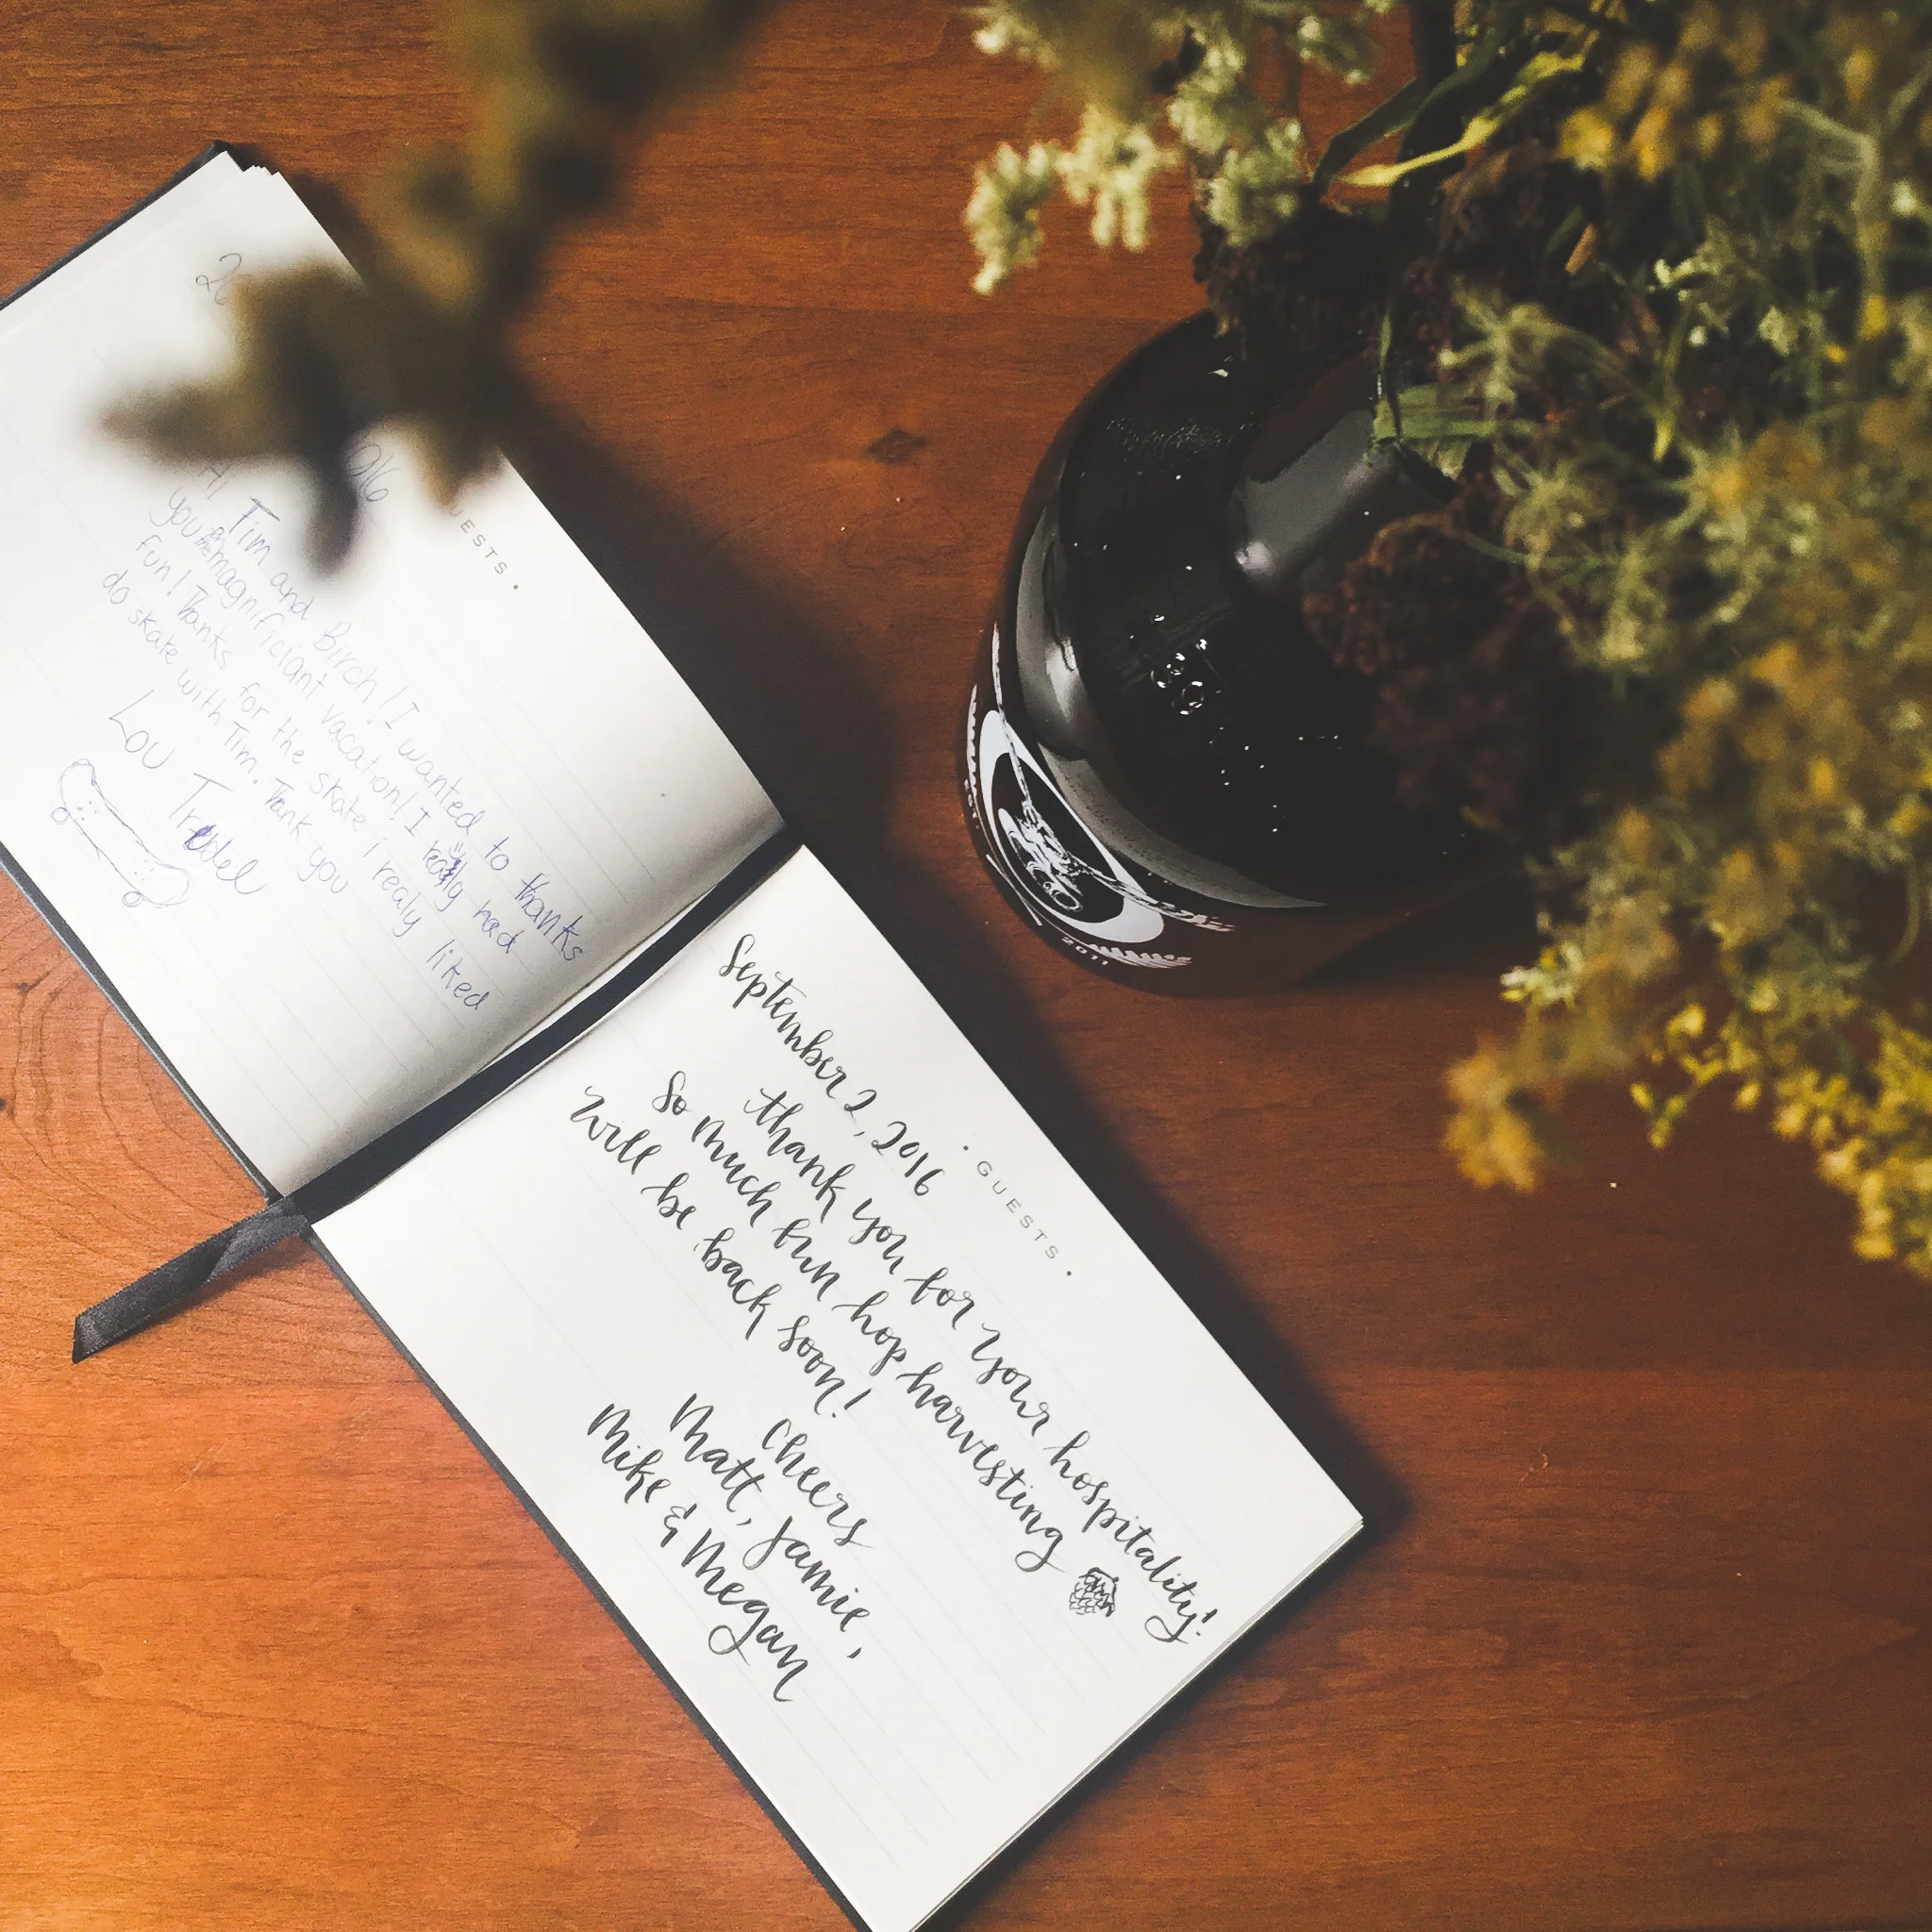 GUESTS •
Hi Tim and Birch! I wanted to thanks
you the magnificiant vacation! I really had
fun! Thanks for the skate i realy liked
do skate with Tim. Thank you
Lou
• GUESTS •
September 2, 2016
Thank you for your hospitality!
So much fun hop harvesting
Will be back soon!
Cheers
Matt, Jamie,
Mike & Megan
2011